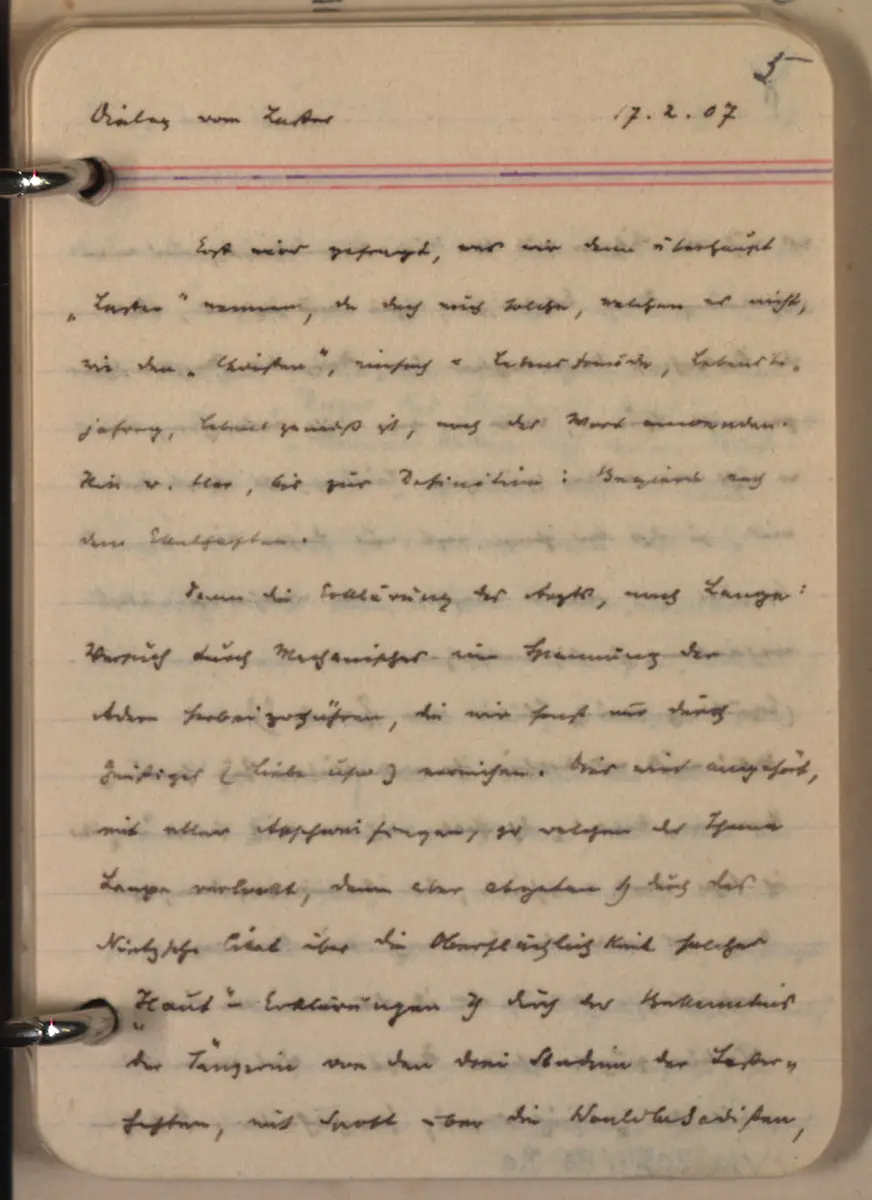 5
Dialog vom Laster 17.2.07
Erst wird gefragt, was wir denn überhaupt
„Laster" nennen, da doch auch solche, welchen es nicht,
wie den „Christen", einfach = Lebensfreude, Lebensbe-
jahung, lebensgemäß ist, noch das Wort anwenden.
Hin u. Her, bis zur Definition: Begierde nach
dem Ekelhaften.
Dann die Erklärung des Arzts, nach Lange:
Versuch durch Mechanisches eine Spannung der
Adern herbeizuführen, die wir sonst nur durch
Geistiges (Liebe usw) erreichen. Dies wird angehört,
mit allen Abschweifungen, zu welchen das Thema
Lange verlockt, dann aber abgetan durch das
Nietzsche Citat über die Oberflächlichkeit solcher
„Haut"-Erklärungen durch das Bekenntnis
der Tänzerin von den drei Stadien der Laster-
haften, mit Spott über die Wouldbesadisten,